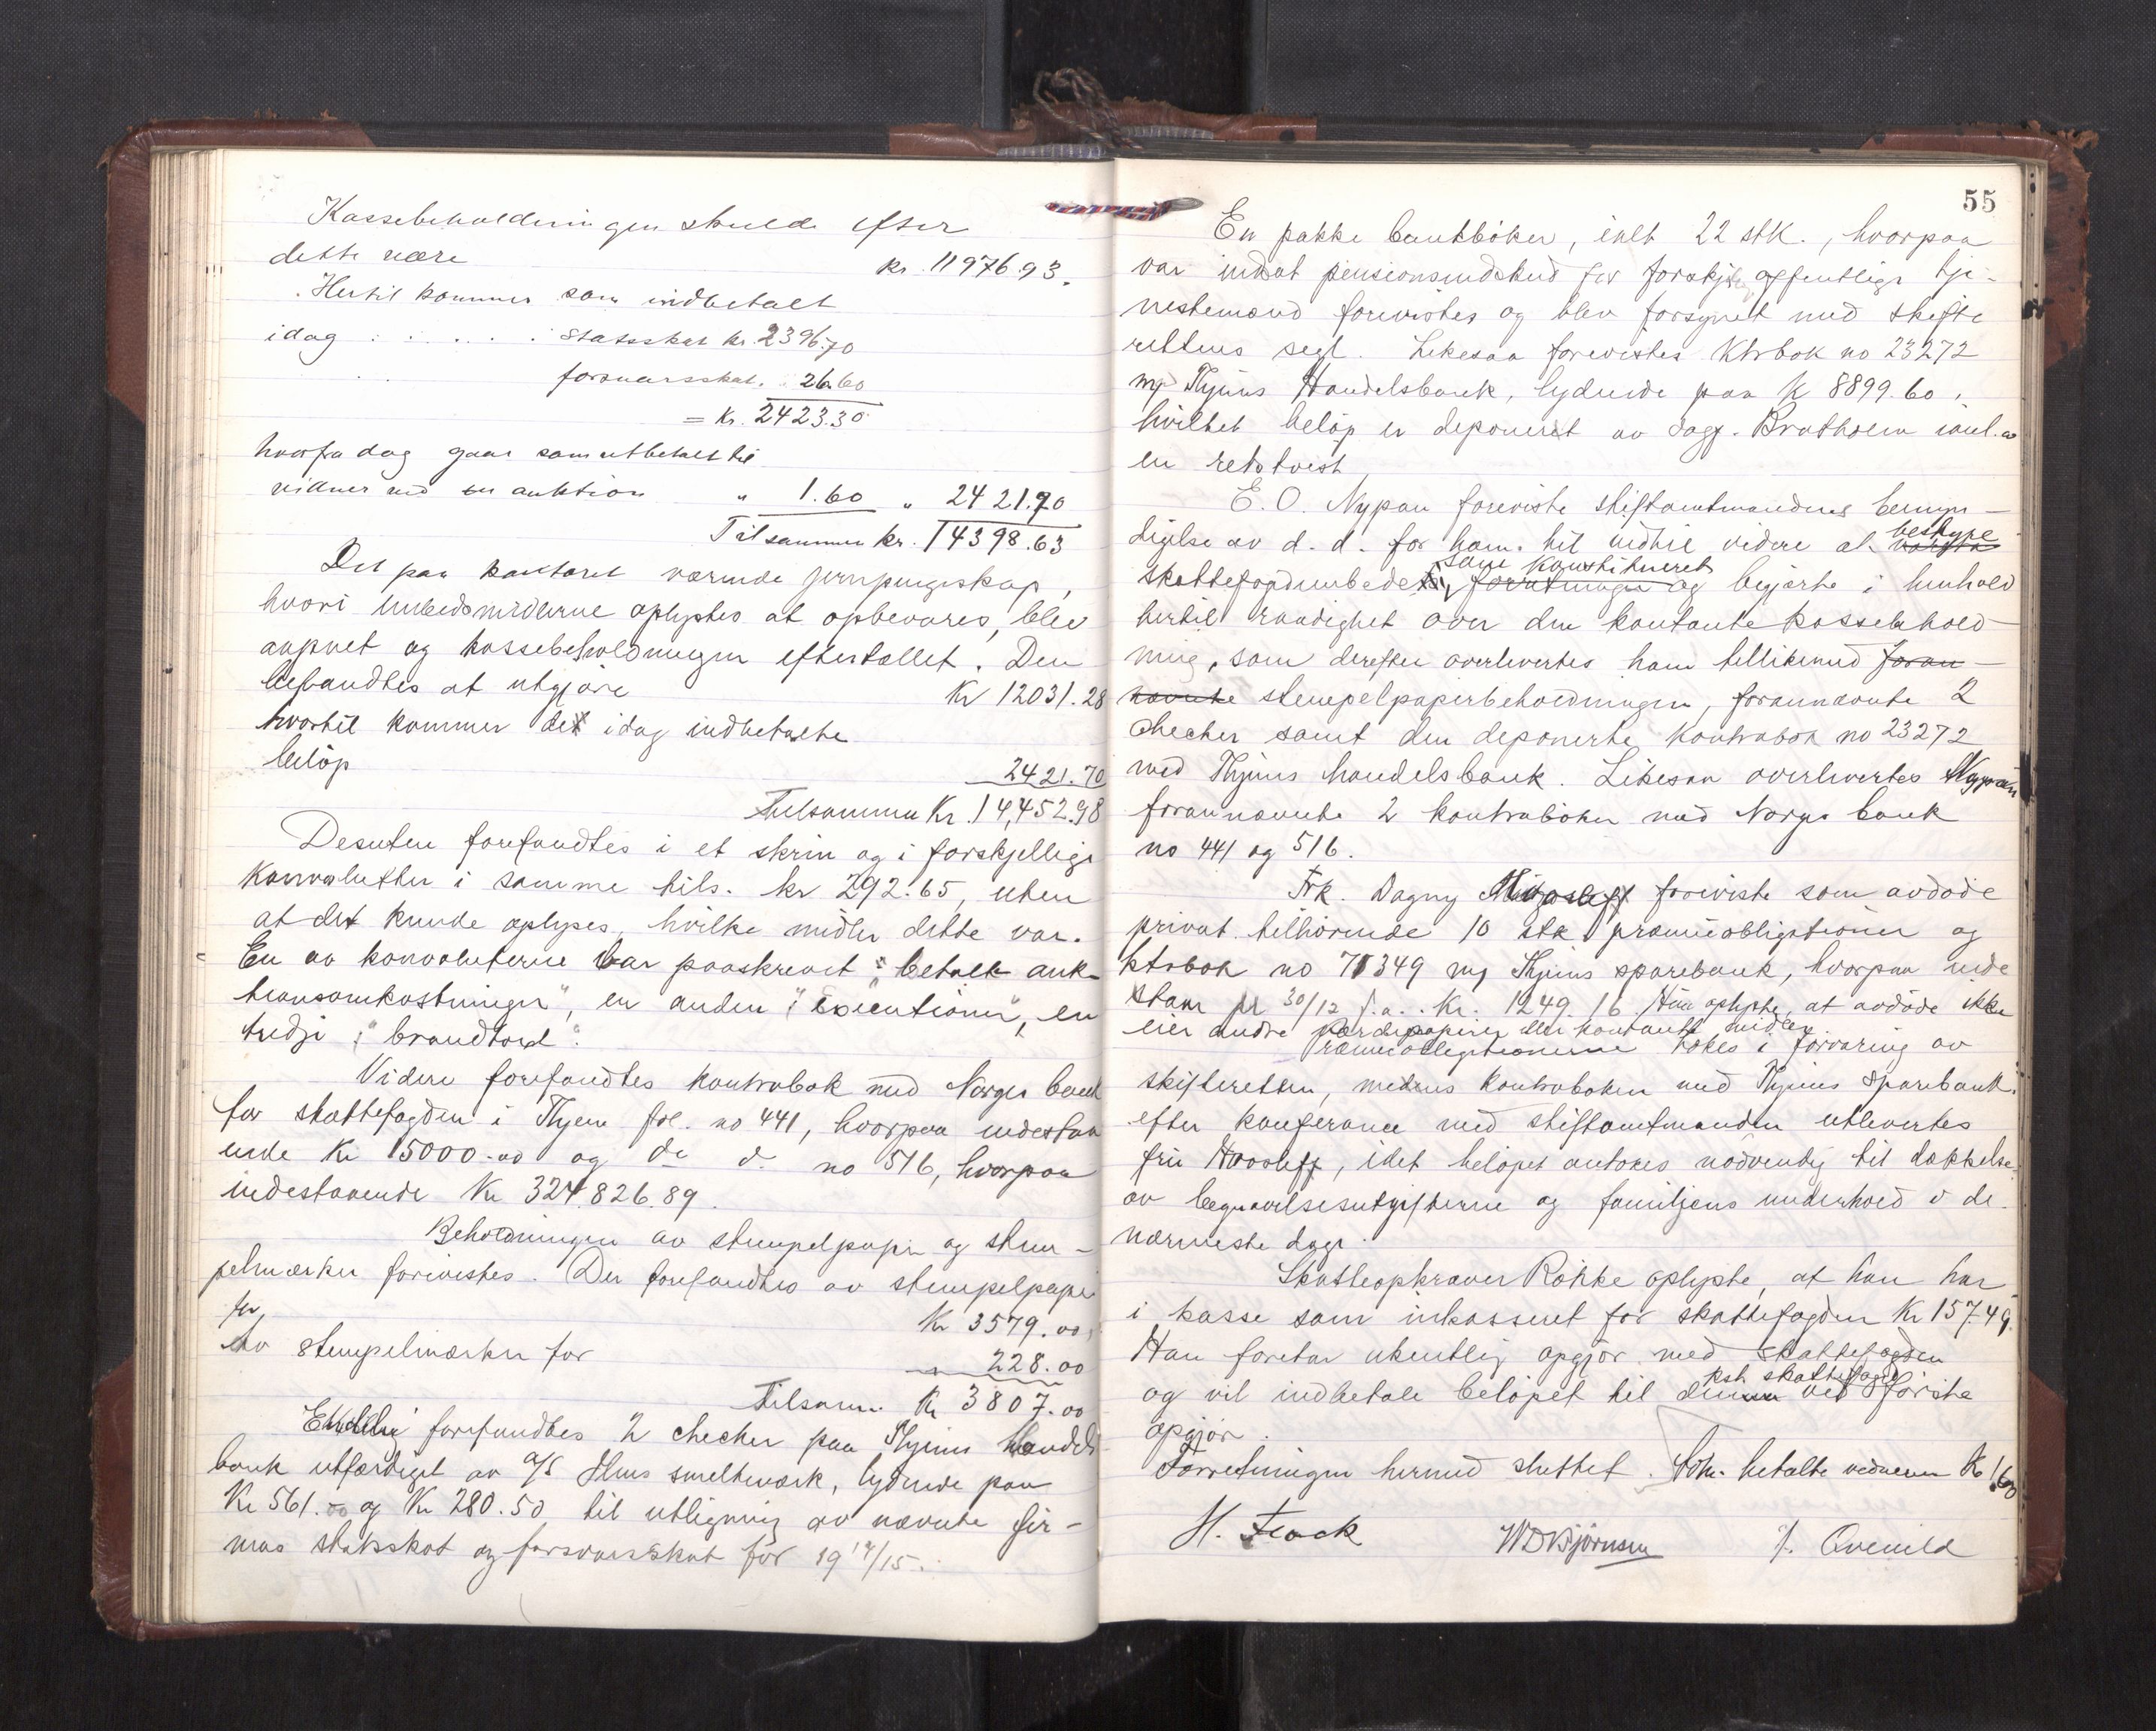 Kassebeholdningen skulde efter
dette være kr. 11976.93.
Hertil kommer som indbetalt
idag : . . . . : Statsskat kr. 2396.70
forsvarsskat. " 26.60
= Kr. 2423.30
hvorfra dog gaar som utbetalt til
vidner ved en auktion " 1.60 " 2421.70
Tilsammen kr. 14398.63
Det paa kontoret værende jernpengeskap,
hvori embedsmidlerne oplystes at opbevares, blev
aapnet og kassebeholdningen eftertællet. Den
befandtes at utgjøre Kr 12031.28
hvortil kommer det idag indbetalte
beløp 2421.70
Tilsammen Kr. 14,452.98
Desuten forefandtes i et skrin og i forskjellige
konvolutter i samme tils. kr 292.65, uten
at det kunde oplyses, hvilke midler dette var.
En av konvoluterne var paaskrevet: "betalt auk-
tionsomkostninger", en anden: "Executioner", en
tredje: "brandtord".
Videre forefandtes kontrabok med Norges bank
for skattefogden i Thjem fol. no 441, hvorpaa indestaa
ende Kr 15000.00 og do do no 516, hvorpaa
indestaaende Kr 324.826.89.
Beholdningen av stempelpapir og stem-
pelmærker forevistes. Der forefandtes av stempelpapir
for Kr 3579.00
Av stempelmærker for " 228.00
Tilsam. Kr 3807.00
Endelig forefandtes 2 checker paa Thjems Handels
bank utfærdiget av A/S Ilens smelteverk, lydende paa
Kr 561.00 og Kr 280.50 til utligning av nævnte fir-
mas statsskat og forsvarsskat for 1914/15.
55
En pakke bankbøker, ialt 22 stk., hvorpaa
var indsat pensionsindskud for forskjel. offentlige tje-
nestemænd forevistes og blev forsynet med skifte
rettens segl. Likesaa forevistes Ktrbok no 23272
m/ Thjems Handelsbank, lydende paa K 8899.60,
hvilket beløp er deponeret av Sagf. Bratholm i anl. av
en retstvist
E. O. Nypan foreviste stiftamtmandens bemyn-
digelse av d. d. for ham til indtil videre at bestyre
skattefogdembedet som konstitueret forretninger og begjærte i henhold
hertil raadighet over den kontante kassebehold-
ning, som derefter overlevertes ham tillikemed foran-
nævnte stempelpapirbeholdningen, forannævnte 2
checker samt den deponerte kontrabok no 23272
med Thjems handelsbank. Likesaa overlevertes Nypan
forannævnte 2 kontrabøker med Norges bank
no 441 og 516.
Frk. Dagny foreviste som avdøde
privat tilhørende 10 stk præmieobligationer og
ktrbok no 71349 m/ Thjems sparebank, hvorpaa inde
staar pr 30/12 f. a. Kr. 1249.16. Hun oplyste, at avdøde ikke
eier andre værdipapirer eller kontante midler.
Præmieobligationerne tokes i forvaring av
skifteretten, medens kontraboken med Thjems Sparebank
efter konferance med stiftamtmanden utlevertes
frk Haasleff, idet beløpet antokes nødvendig til dækkelse
av begravelsesutgifterne og familjens underhold i de
nærmeste dage.
Skatteopkræver Rokke oplyste, at han har
i kasse som inkasseret for skattefogden Kr 157.49.
Han foretar ukentlig opgjør med skattefogden
og vil indbetale beløpet til kst. skattefogd denne ved første
opgjør.
Forretningen hermed sluttet. betalte vidnerne Kr 1.60
H. Flock W D Bjørnsen J. Qvenild